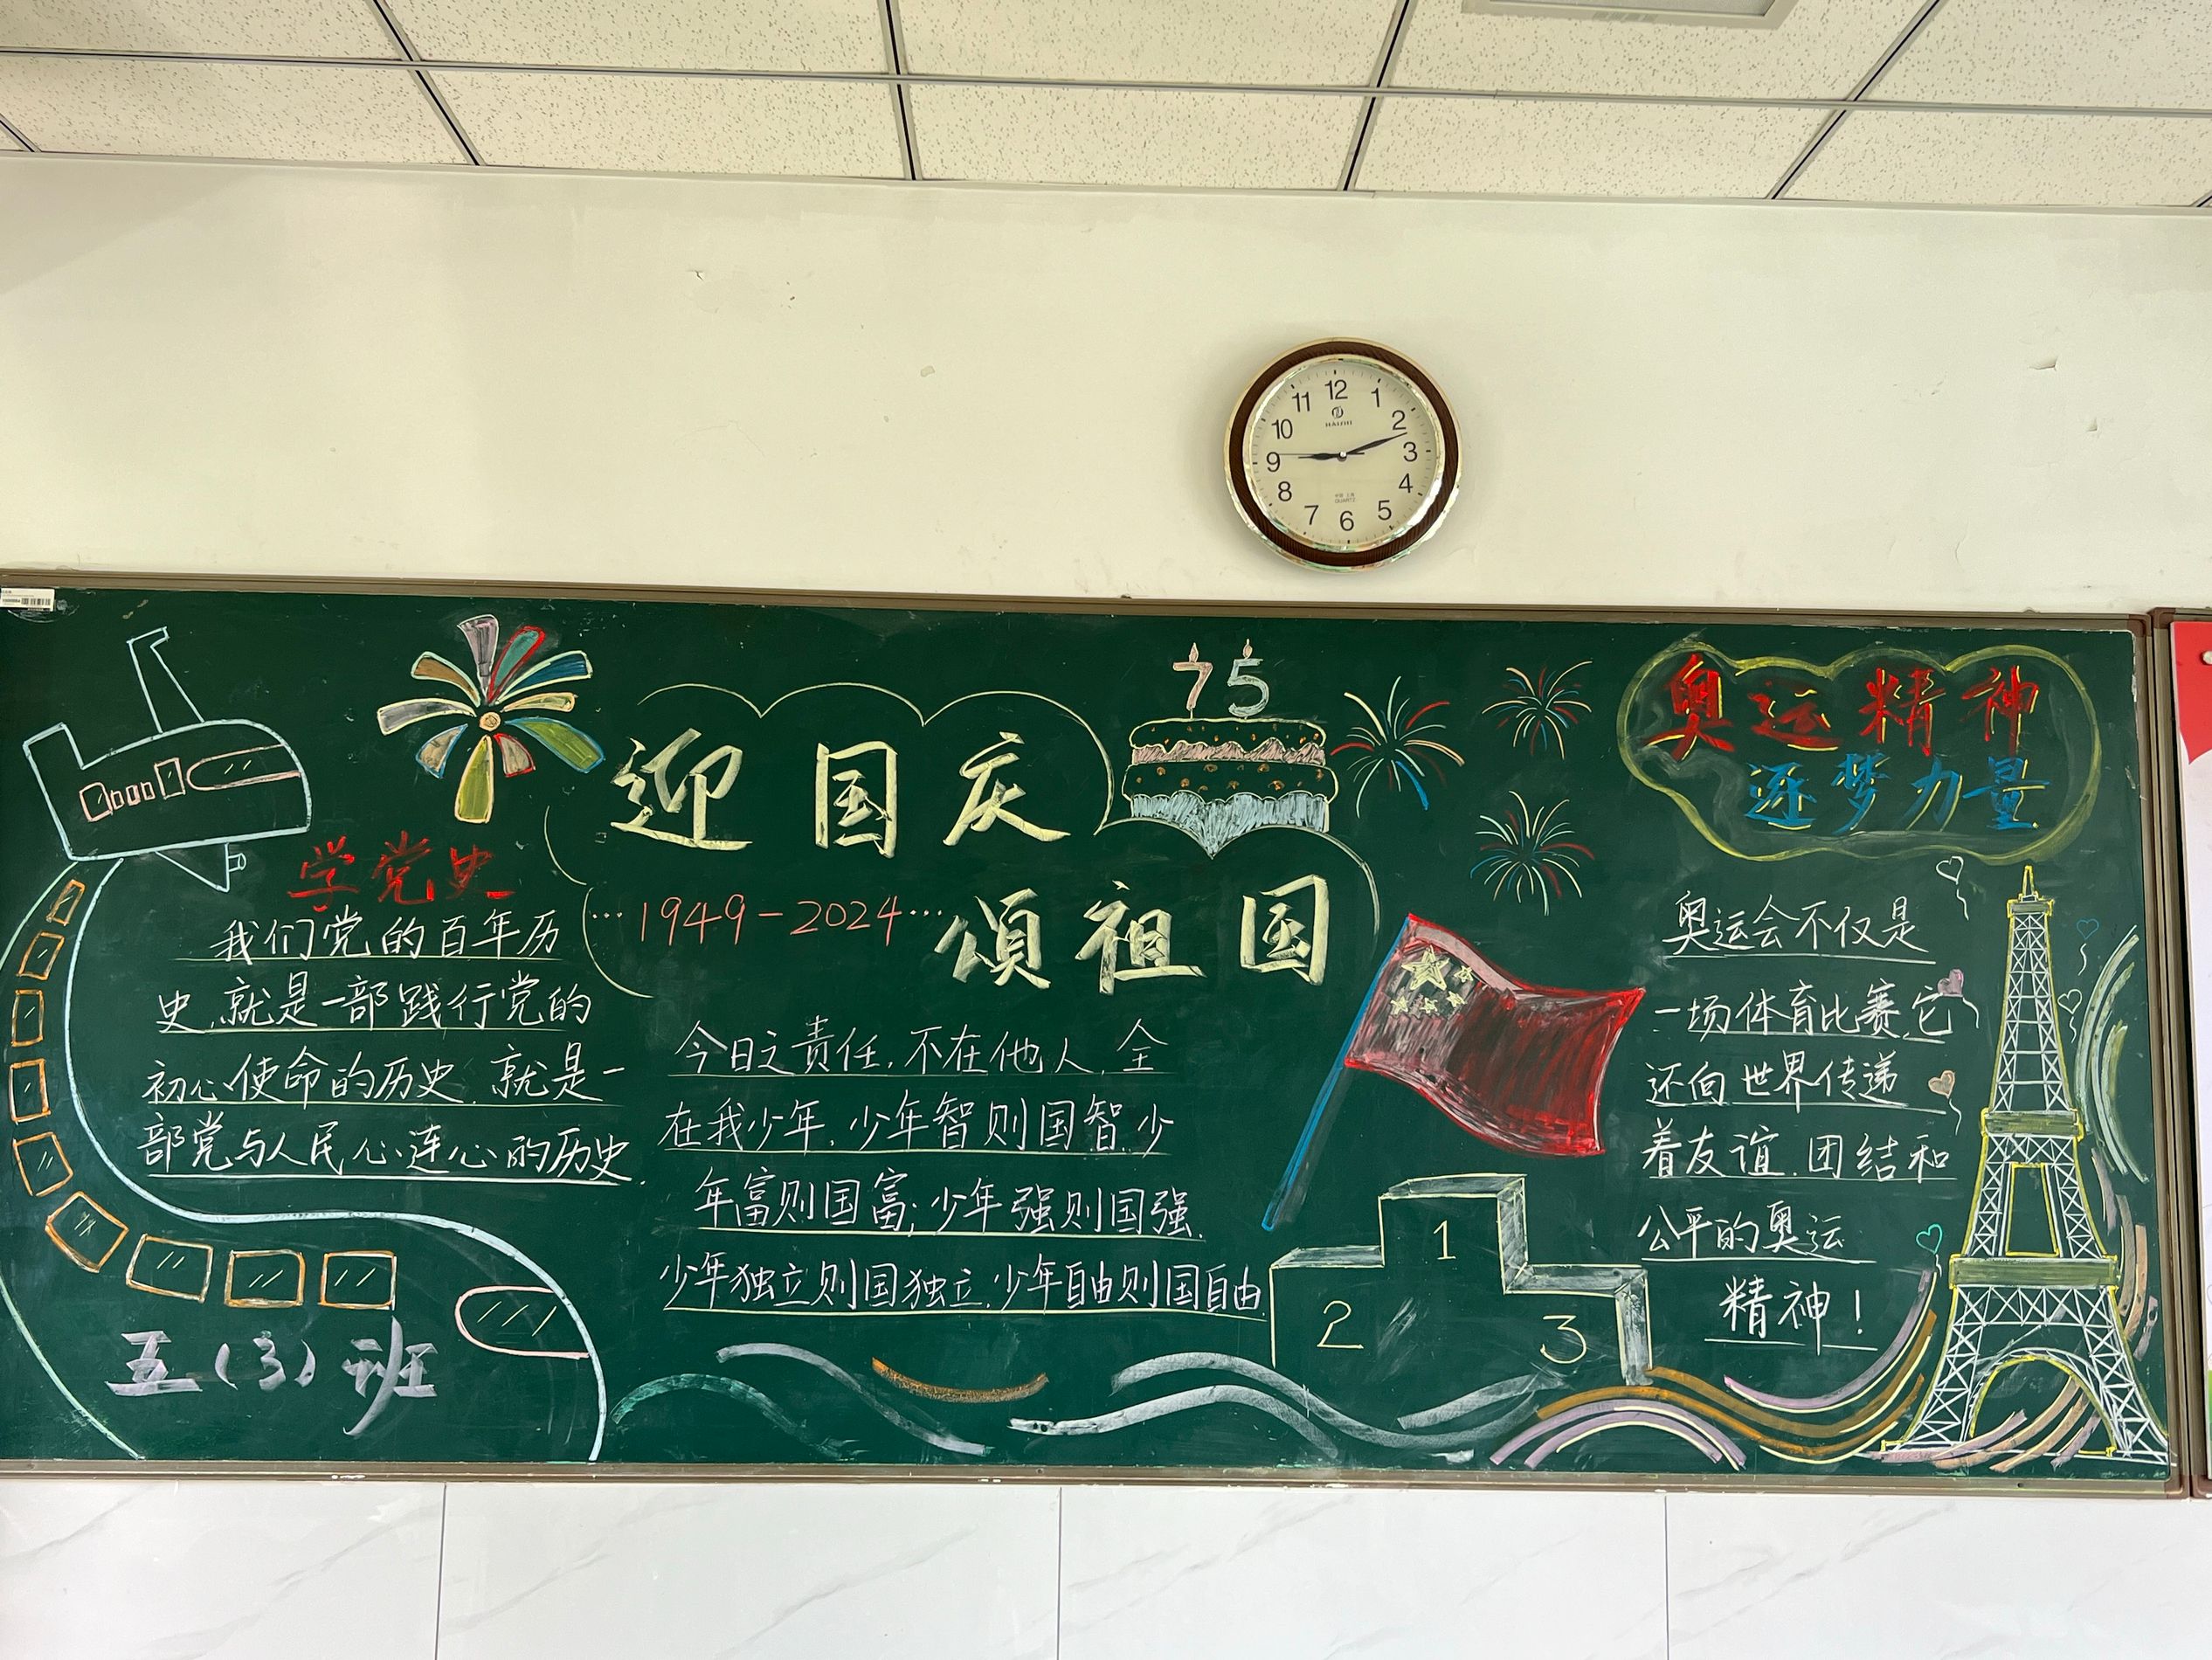 12
11
1
10
2
9
3
8
4
7
5
6
QUARTZ
75
迎国庆
1949-2024…
颂祖国
学党史
我们党的百年历
史,就是一部践行党的
初心使命的历史,就是一
部党与人民心连心的历史.
五(3)班
今日之责任,不在他人,全
在我少年,少年智则国智,少
年富则国富;少年强则国强,
少年独立则国独立,少年自由则国自由
1
2
3
奥运精神
逐梦力量
奥运会不仅是
一场体育比赛,它
还向世界传递
着友谊,团结和
公平的奥运
精神!